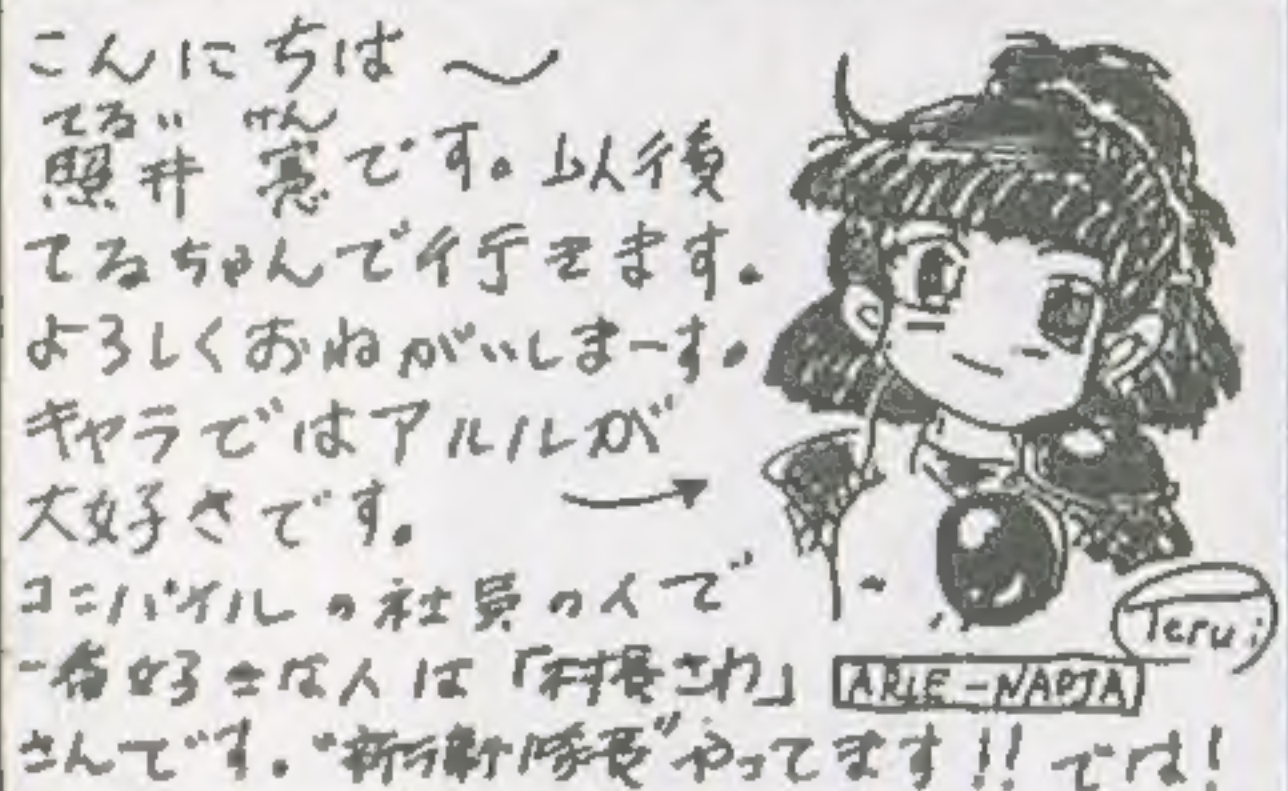 こんにちは〜
てるい けん
照井 憲です。以後
てるちゃんで行きます。
よろしくおねがいしまーす。
キャラではアルルが
大好きです。
コンパイルの社員の人で
一番好きな人は「村長さわ」
さんです。“親衛隊長”やってます!! では!
Terui
ARLE-NADJA